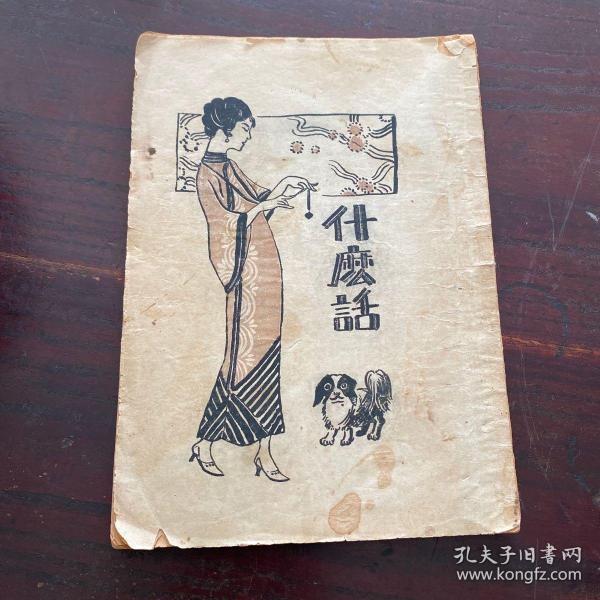 什麽話
孔夫子旧書网
www.kongfz.com